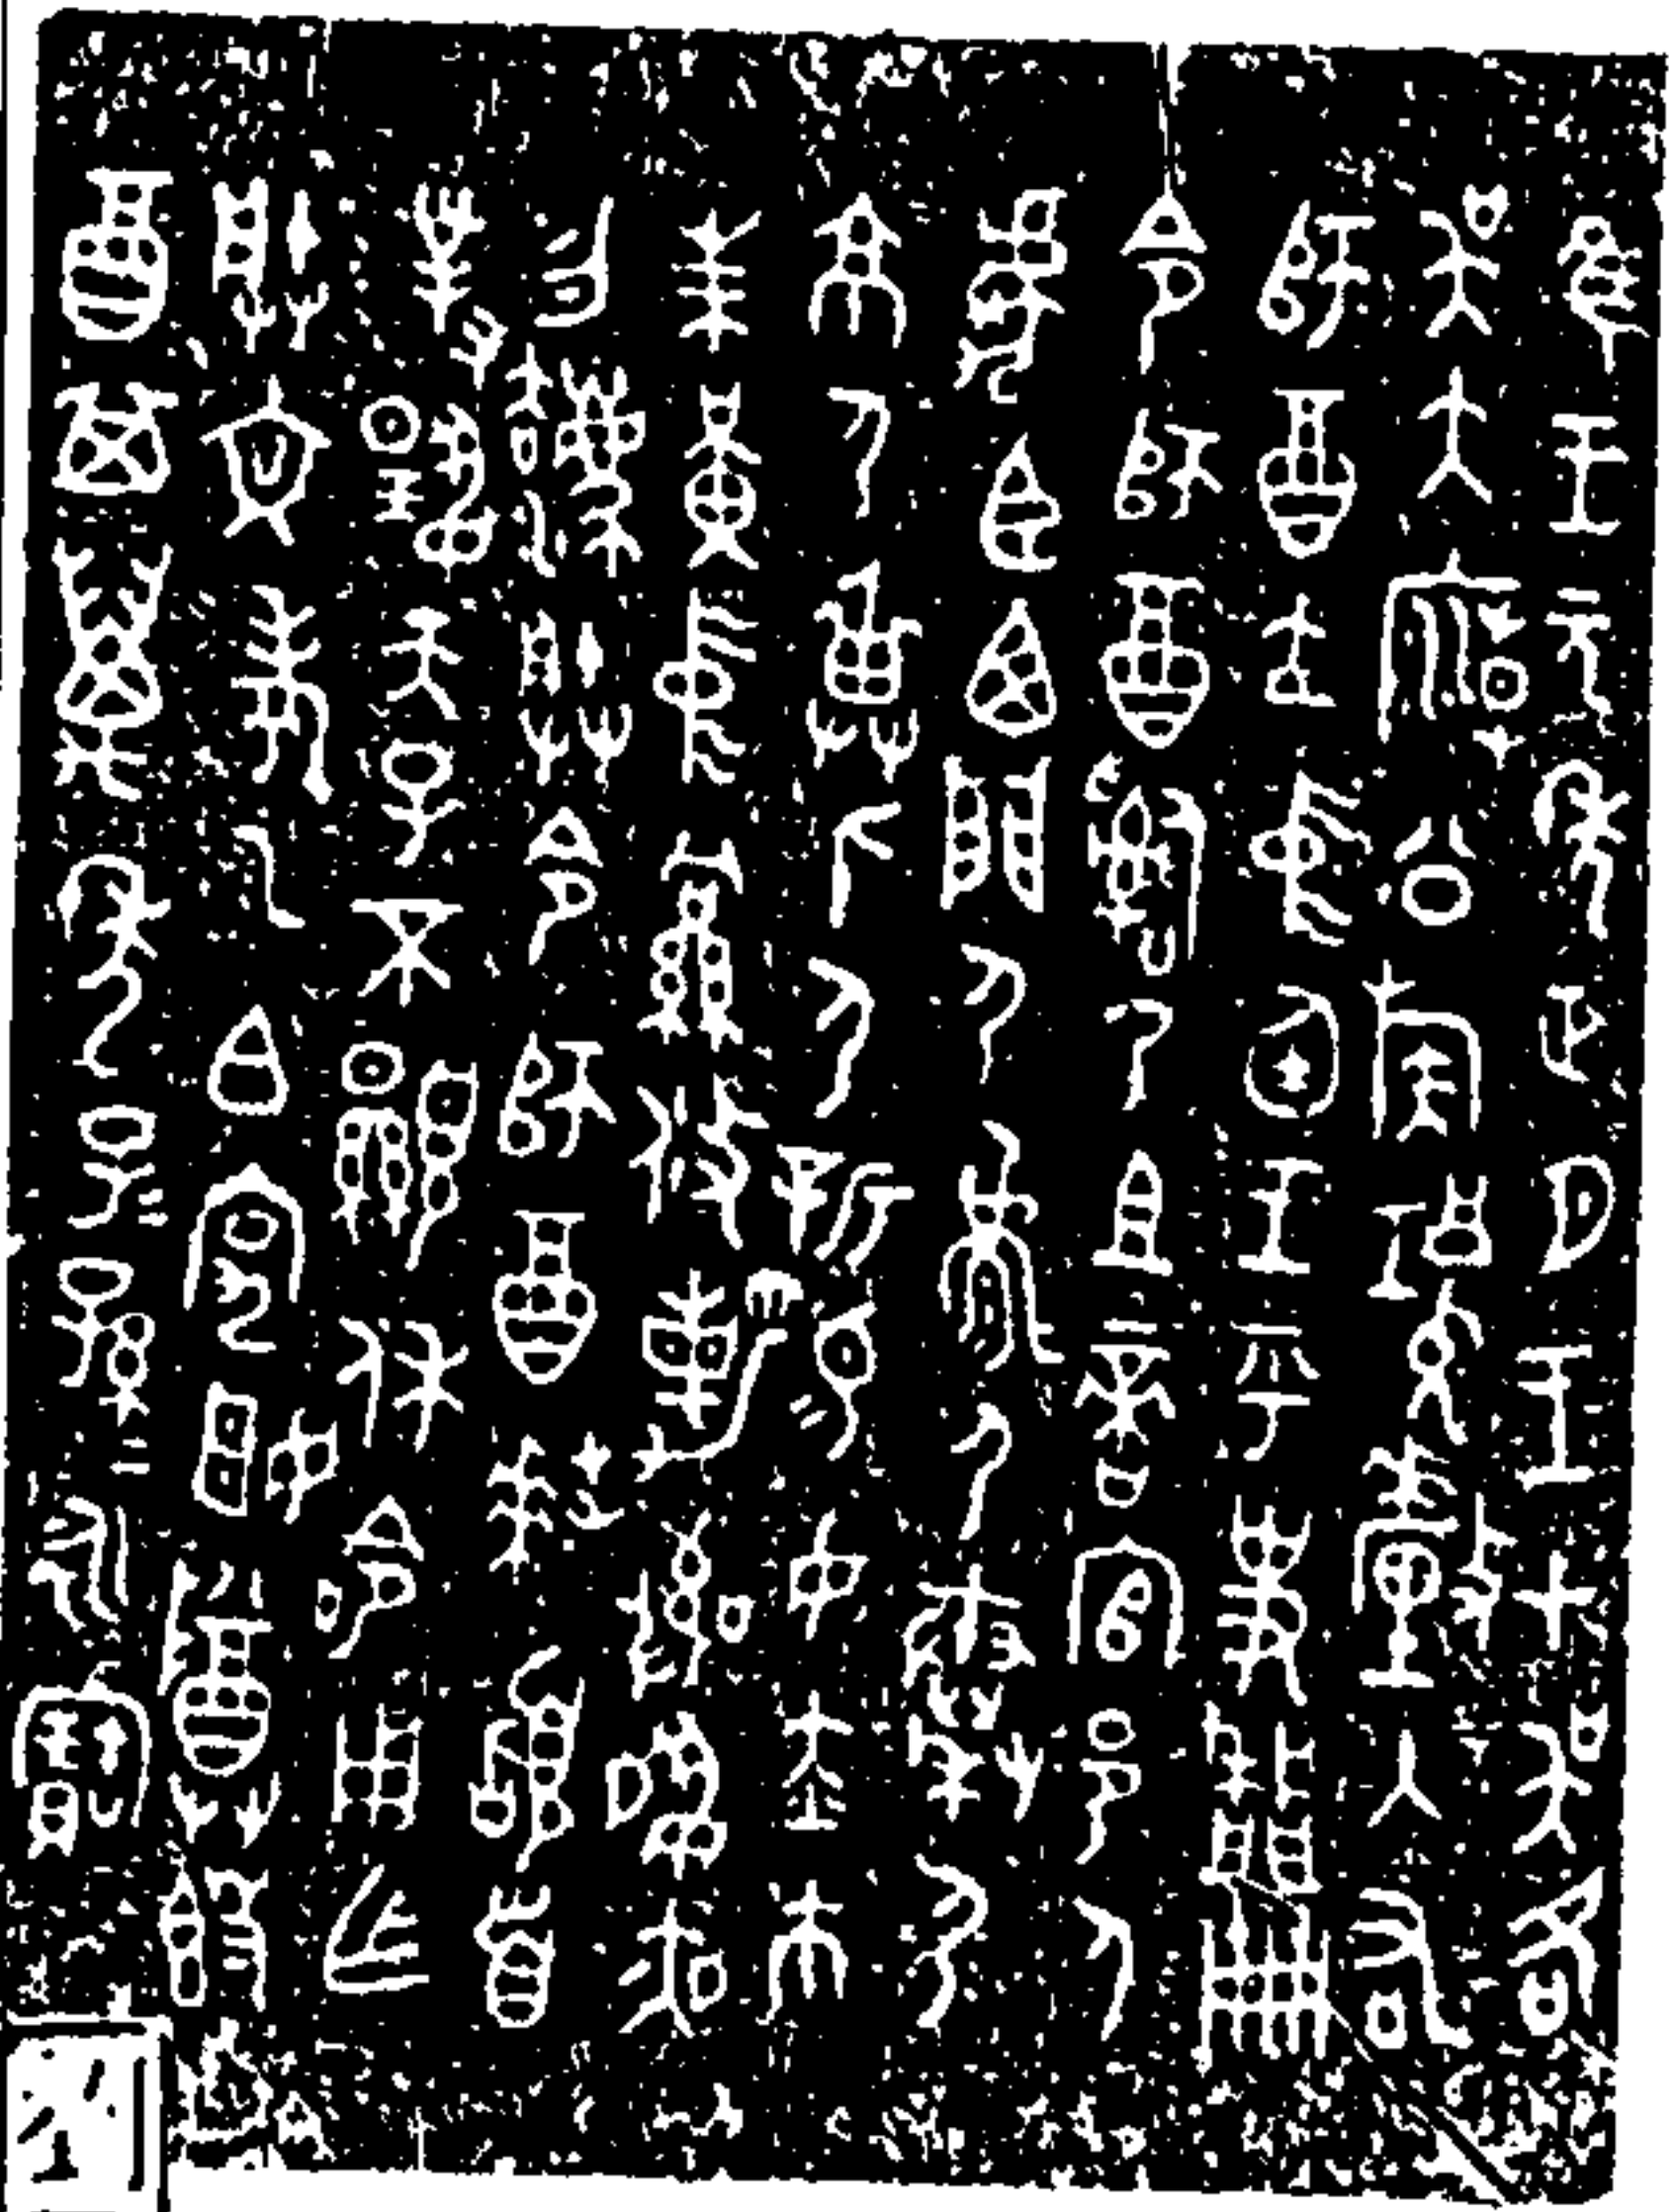 隹王元年正月王才吳各
吳大廟公族𤔲釐入右
師酉立中廷王乎史牆冊
命師酉𤔲乃且啻官邑人
虎臣西門尸𩵦尸秦尸
京尸畀身尸新易女赤巿
朱黃中𦀚攸勒敬夙夜
勿灋朕令師酉拜𩒨首
對揚天子不顯休令用乍
朕文考乙白宄姬尊𣪘
酉其萬年子=孫=永寶